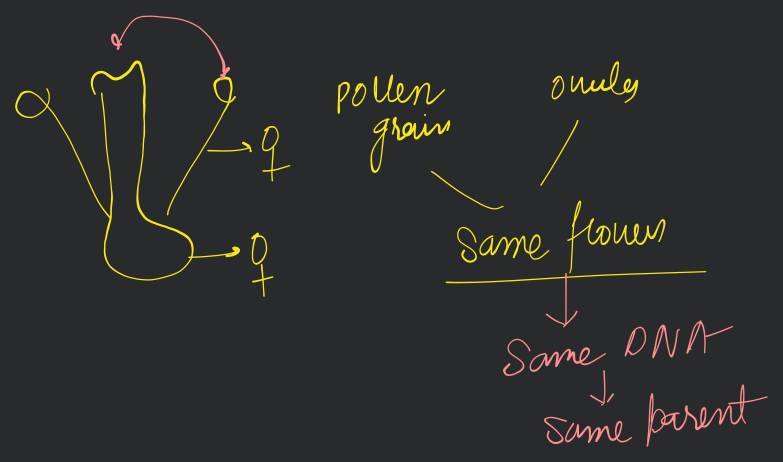 pollen
grain
ovules
♀
♀
Same flower
Same DNA
Same parent